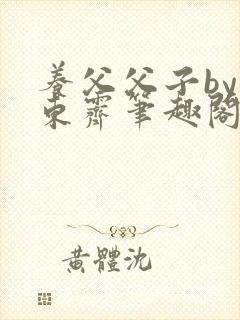 養父父子by
東霽筆趣閣
黃體沈